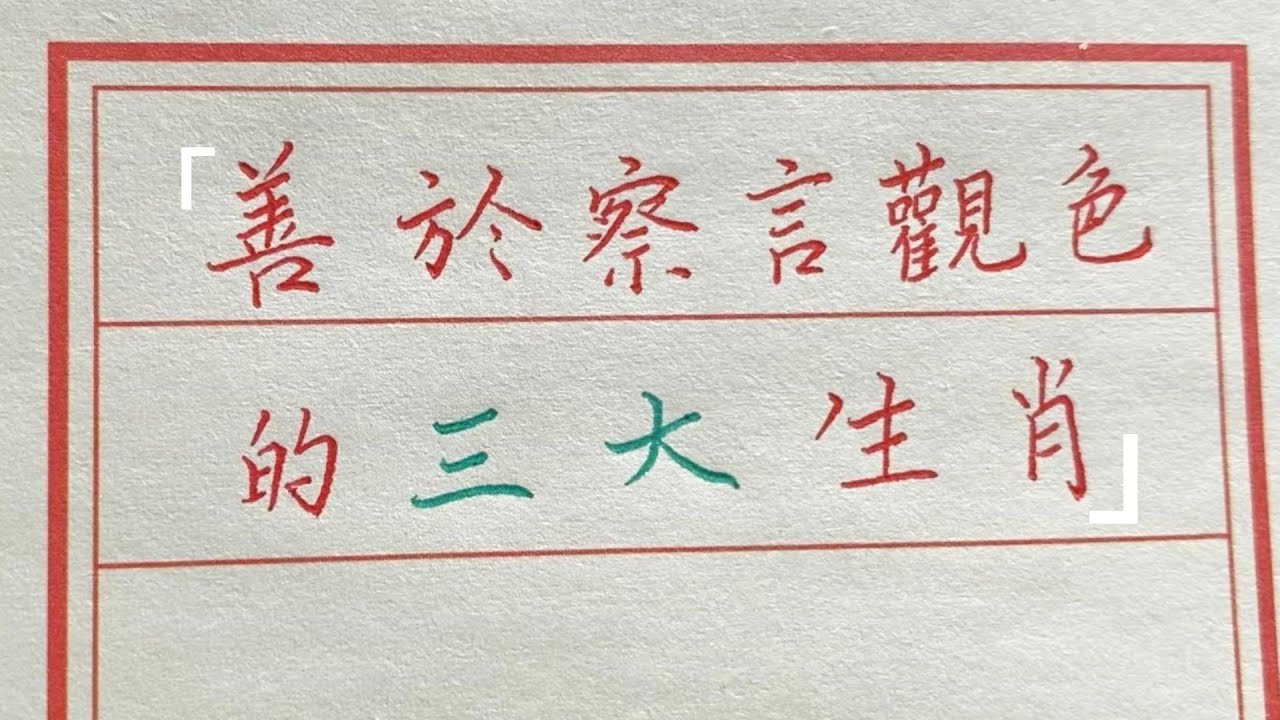 「善於察言觀色
的三大生肖」